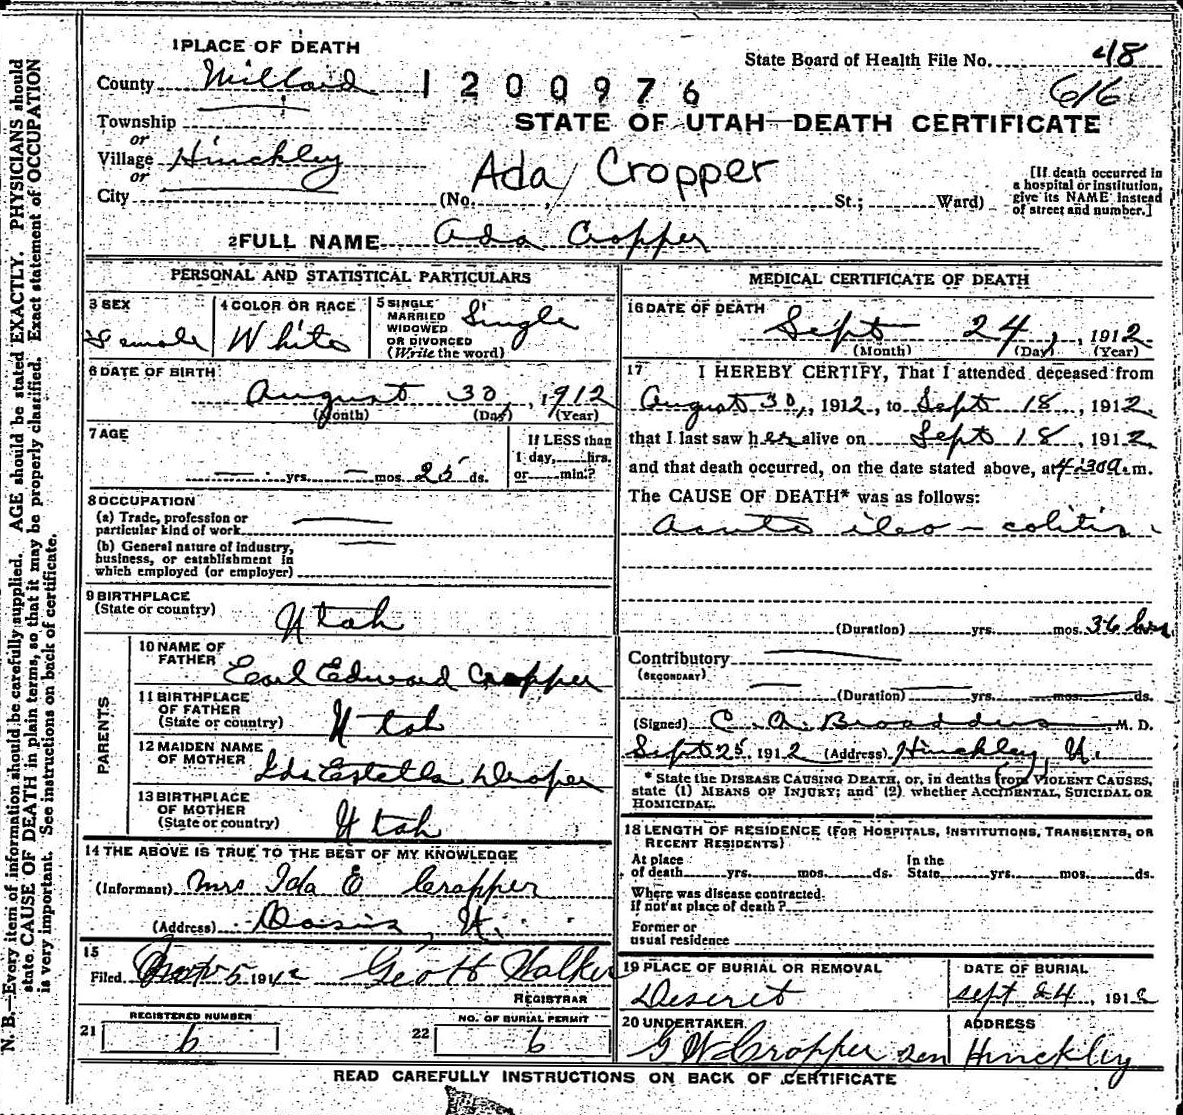 1 PLACE OF DEATH
State Board of Health File No. 48
County Millard 1200976
616
Township
STATE OF UTAH—DEATH CERTIFICATE
or
Village Hinckley
or
Ada Cropper
City
(No. St.; Ward)
[If death occurred in
a hospital or institution,
give its NAME instead
of street and number.]
2 FULL NAME Ada Cropper
PERSONAL AND STATISTICAL PARTICULARS
3 SEX
Female
4 COLOR OR RACE
White
5 SINGLE
MARRIED
WIDOWED
OR DIVORCED
(Write the word)
Single
6 DATE OF BIRTH
August 30, 1912
(Month) (Day) (Year)
7 AGE
— yrs. — mos. 25 ds.
If LESS than
1 day, hrs.
or min.?
8 OCCUPATION
(a) Trade, profession or
particular kind of work
(b) General nature of industry,
business, or establishment in
which employed (or employer)
9 BIRTHPLACE
(State or country)
Utah
PARENTS
10 NAME OF
FATHER
Earl Edward Cropper
11 BIRTHPLACE
OF FATHER
(State or country)
Utah
12 MAIDEN NAME
OF MOTHER
Ida Estella Draper
13 BIRTHPLACE
OF MOTHER
(State or country)
Utah
14 THE ABOVE IS TRUE TO THE BEST OF MY KNOWLEDGE
(Informant) Mrs Ida E Cropper
(Address) Oasis, U.
15
Filed 5 191 Geo Walker
REGISTRAR
21
REGISTERED NUMBER
6
22
NO. OF BURIAL PERMIT
6
MEDICAL CERTIFICATE OF DEATH
16 DATE OF DEATH
Sept 24, 1912
(Month) (Day) (Year)
17 I HEREBY CERTIFY, That I attended deceased from
August 30, 1912, to Sept 18, 1912,
that I last saw her alive on Sept 18, 1912,
and that death occurred, on the date stated above, at 4:30 a.m.
The CAUSE OF DEATH* was as follows:
Acute ileo-colitis
(Duration) yrs. mos. 36 hrs.
Contributory
(SECONDARY)
(Duration) yrs. mos. ds.
(Signed) C. A. Broaddus, M. D.
Sept 25 1912 (Address) Hinckley U.
* State the DISEASE CAUSING DEATH, or, in deaths from VIOLENT CAUSES,
state (1) MEANS OF INJURY; and (2) whether ACCIDENTAL, SUICIDAL OR
HOMICIDAL.
18 LENGTH OF RESIDENCE (FOR HOSPITALS, INSTITUTIONS, TRANSIENTS, OR
RECENT RESIDENTS)
At place
of death yrs. mos. ds.
In the
State yrs. mos. ds.
Where was disease contracted.
if not at place of death?
Former or
usual residence
19 PLACE OF BURIAL OR REMOVAL
Deseret
DATE OF BURIAL
Sept 24, 1912
20 UNDERTAKER
G W Cropper sen
ADDRESS
Hinckley
READ CAREFULLY INSTRUCTIONS ON BACK OF CERTIFICATE
N. B.—Every item of information should be carefully supplied. AGE should be stated EXACTLY. PHYSICIANS should
state CAUSE OF DEATH in plain terms, so that it may be properly classified. Exact statement of OCCUPATION
is very important. See instructions on back of certificate.